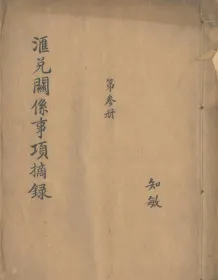 滙兌關係事項摘錄
第叁册
知敏